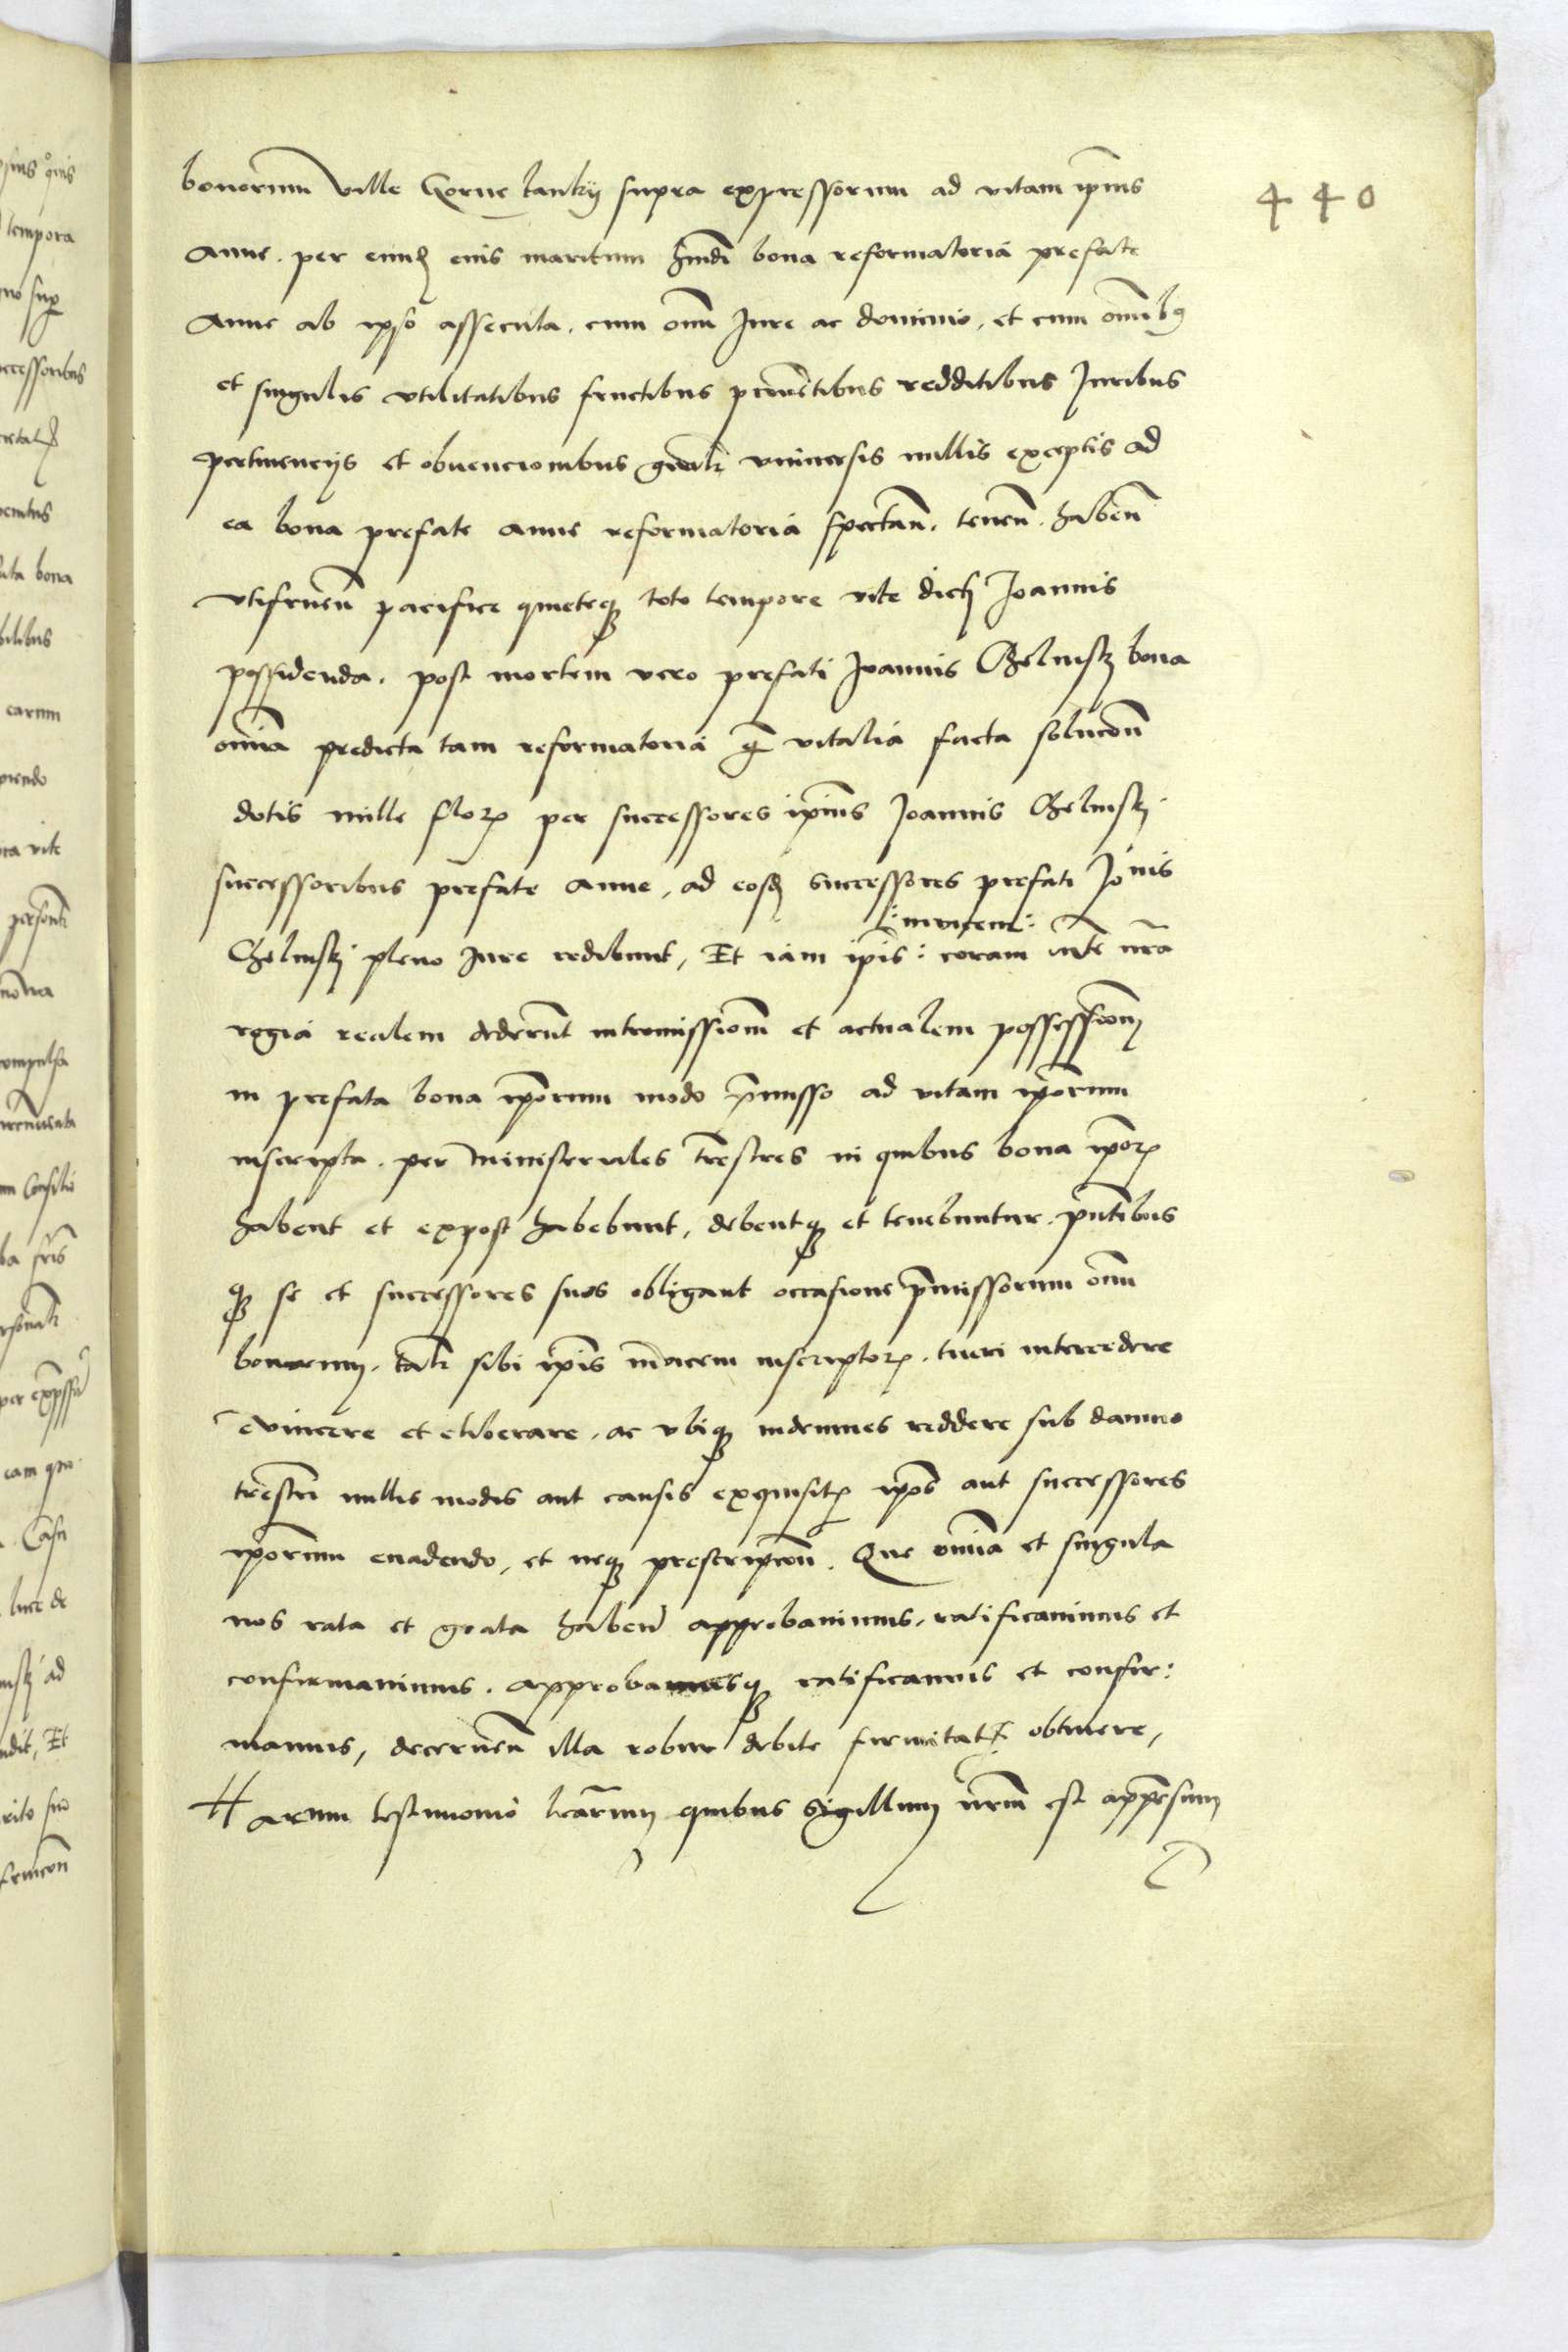 440
bonorum ville Gorne lanky supra expressorum ad vitam ip̄ius
Anne. per eund eius maritum hm̄di bona reformatoria prefate
Anne ab ipso assecuta. cum om̄i Jure ac dominio. et cum om̄ibꝯ
et singulis vtilitatibus fructibus prouētibus redditibus Juribus
pertinencijs et obuencionibus gn̄alr vniuersis nullis exceptis ad
ea bona prefate Anne reformatoria spectan̄. tenen̄. haben̄
vtifruen̄ pacifice quieteqȝ toto tempore vite dicti Joannis
possidenda. post mortem vero prefati Joannis Chelmsky bona
om̄ia predicta tam reformatoria qᷓ vitalia facta solucōn̄
dotis mille florꝝ per successores ip̄ius Joannis Chelmsky
successoribus prefate Anne, ad eosd successores prefati Joānis
Chelmsky pleno Jure redibunt, Et iam ip̄is : coram m̄te nr̄a
: inuicem :
regia realem dederūt intromissionē et actualem possessionē
in prefata bona ip̄orum modo p̄misso ad vitam ip̄orum
inscripta. per ministeriales trēstres in quibus bona ip̄orꝝ
habent et expost habebunt, debentqȝ et tenebuntur. pn̄tibus
qȝ se et successores suos obligant occasione p̄missorum om̄i
bonorum. talr sibi ip̄is inuicem inscriptorꝝ. tueri intercedere
euincere et eliberare. ac vbiqȝ indemnes reddere sub damno
trēstri nullis modis aut causis exquisitꝭ ip̄os aut successores
ip̄orum euadendo, et neqȝ prescripcōn̄. Que om̄ia et singula
nos rata et grata haben̄ approbauimus. ratificauimus et
confirmauimus. approbamusqȝ ratificamus et confir:
mamus, decernen̄ illa robur debite firmitatꝭ obtinere,
Harum testimonio lr̄arum quibus Sigillum nr̄m est appēsum